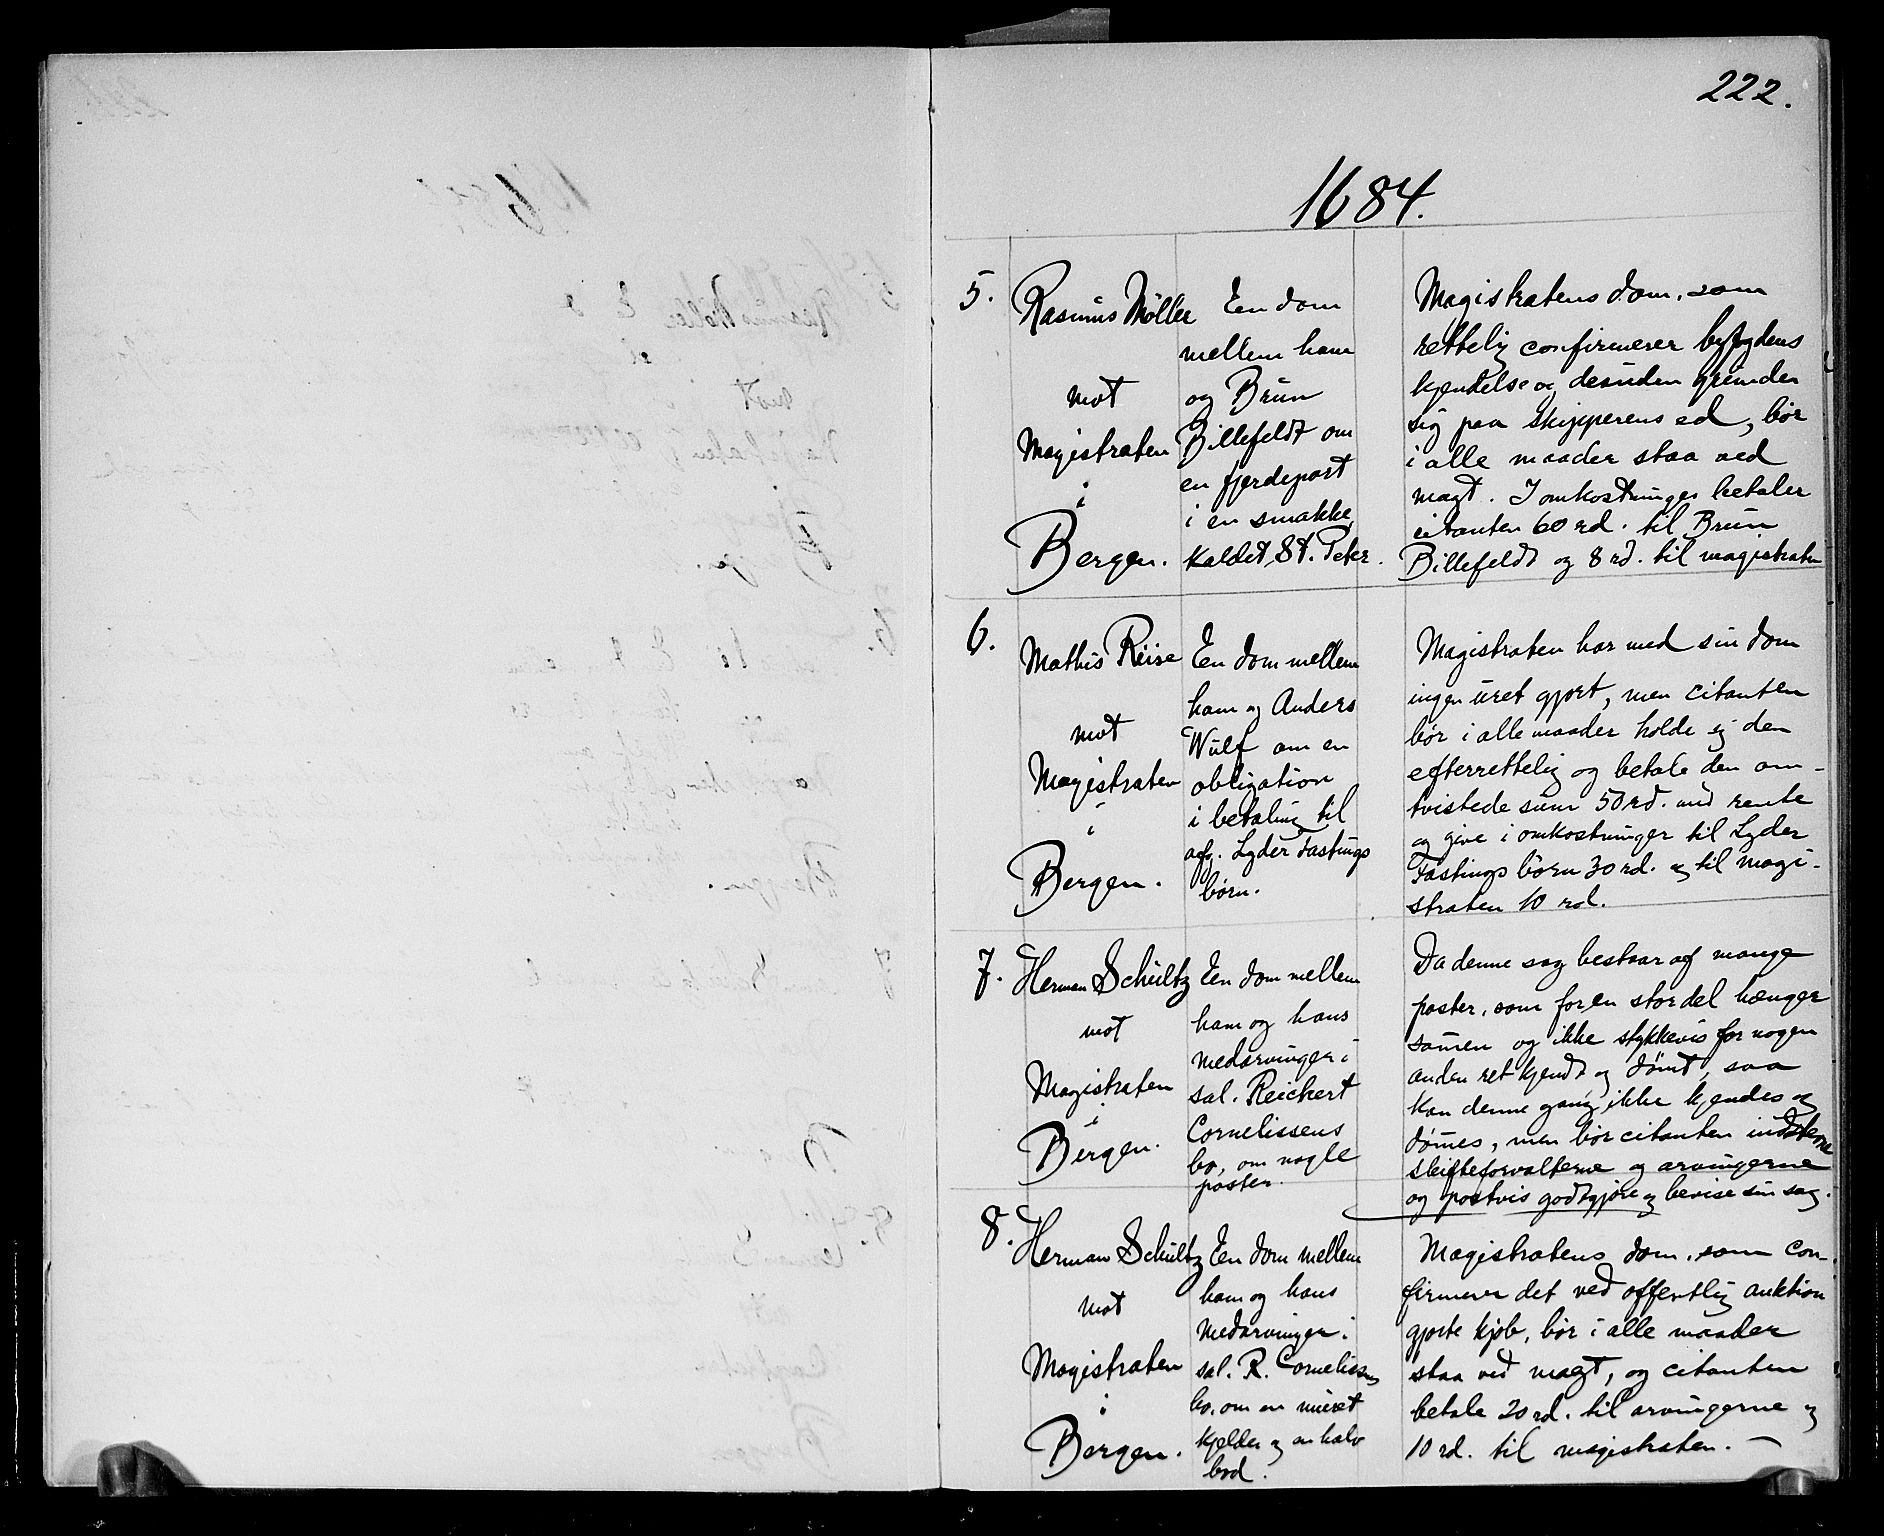 222.
1684.
5.
Rasmus Møller
mot
Magistraten
i
Bergen.
En dom
mellem ham
og Brun
Billefeldt om
en fjerdepart
i en smakke,
kaldet St. Peter.
Magistratens dom, som
rettelig confirmerer byfogdens
kjendelse og desuden grunder
sig paa skipperens ed, bør
i alle maader staa ved
magt. I omkostninger betaler
citanten 60 rd. til Brun
Billefeldt og 8 rd. til magistraten
6.
Mathis Reise
mot
Magistraten
i
Bergen.
En dom mellem
ham og Anders
Wulf om en
obligation
i betaling til
afg. Lyder Fastings
børn.
Magistraten har med sin dom
ingen uret gjort, men citanten
bør i alle maader holde sig den
efterrettelig og betale den om-
tvistede sum 50 rd. med rente
og give i omkostninger til Lyder
Fastings børn 30 rd. og til magi-
straten 10 rd.
7.
Herman Schultz
mot
Magistraten
i
Bergen.
En dom mellem
ham og hans
medarvinger i
sal. Reichert
Cornelissens
bo, om nogle
poster.
Da denne sag bestaar af mange
poster, som for en stor del hænger
samen og ikke stykkevis for nogen
anden ret kjendt og dømt, saa
kan denne gang ikke kjendes og
dømes, men bør citanten indstevne
skifteforvalterne og arvingerne
og postvis godtgjøre og bevise sin sag.
8.
Herman Schultz
mot
Magistraten
i
Bergen.
En dom mellem
ham og hans
medarvinger i
sal. R. Cornelissens
bo, om en muret
kjelder og en halv
bod.
Magistratens dom, som con-
firmerer det ved offentlig auktion
gjorte kjøb, bør i alle maader
staa ved magt, og citanten
betale 20 rd. til arvingerne og
10 rd. til magistraten. —